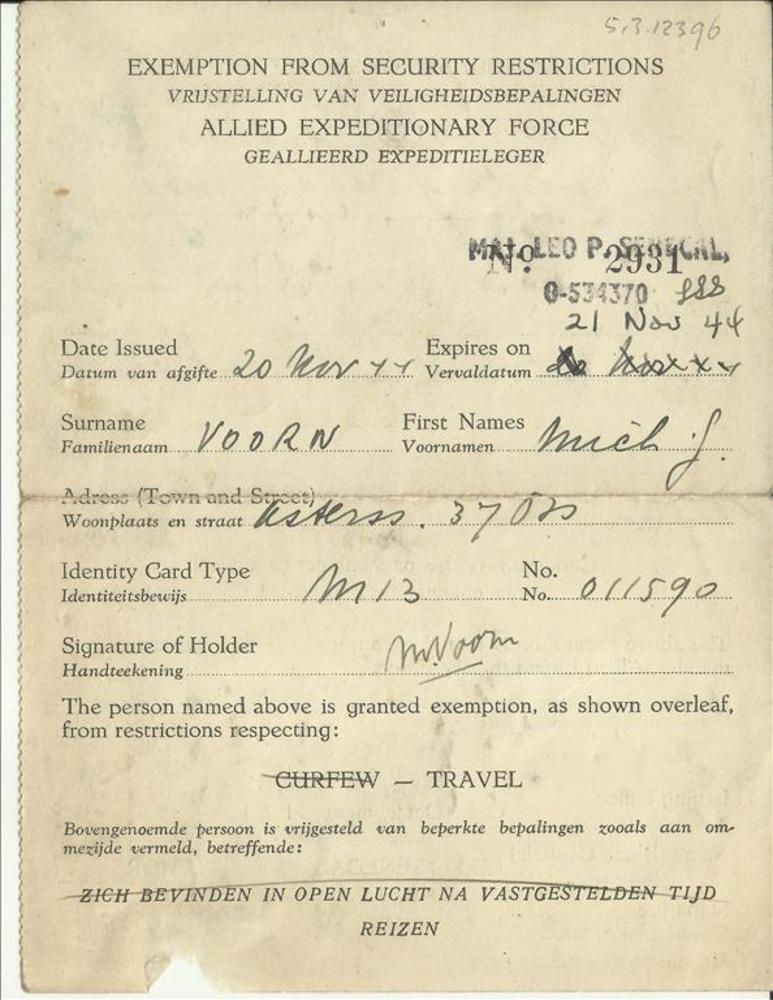 5.3.12396
EXEMPTION FROM SECURITY RESTRICTIONS
VRIJSTELLING VAN VEILIGHEIDSBEPALINGEN
ALLIED EXPEDITIONARY FORCE
GEALLIEERD EXPEDITIELEGER
MAJ. LEO P. SENECAL,
No. 2931
0-534370
21 Nov 44
Date Issued Expires on
Datum van afgifte 20 Nov 44 Vervaldatum
Surname First Names
Familienaam VOORN Voornamen Mich J.
Adress (Town and Street)
Woonplaats en straat 37
Identity Card Type No.
Identiteitsbewijs M 13 No. 011590
Signature of Holder M. Voorn
Handteekening
The person named above is granted exemption, as shown overleaf,
from restrictions respecting:
CURFEW — TRAVEL
Bovengenoemde persoon is vrijgesteld van beperkte bepalingen zooals aan om-
mezijde vermeld, betreffende:
ZICH BEVINDEN IN OPEN LUCHT NA VASTGESTELDEN TIJD
REIZEN